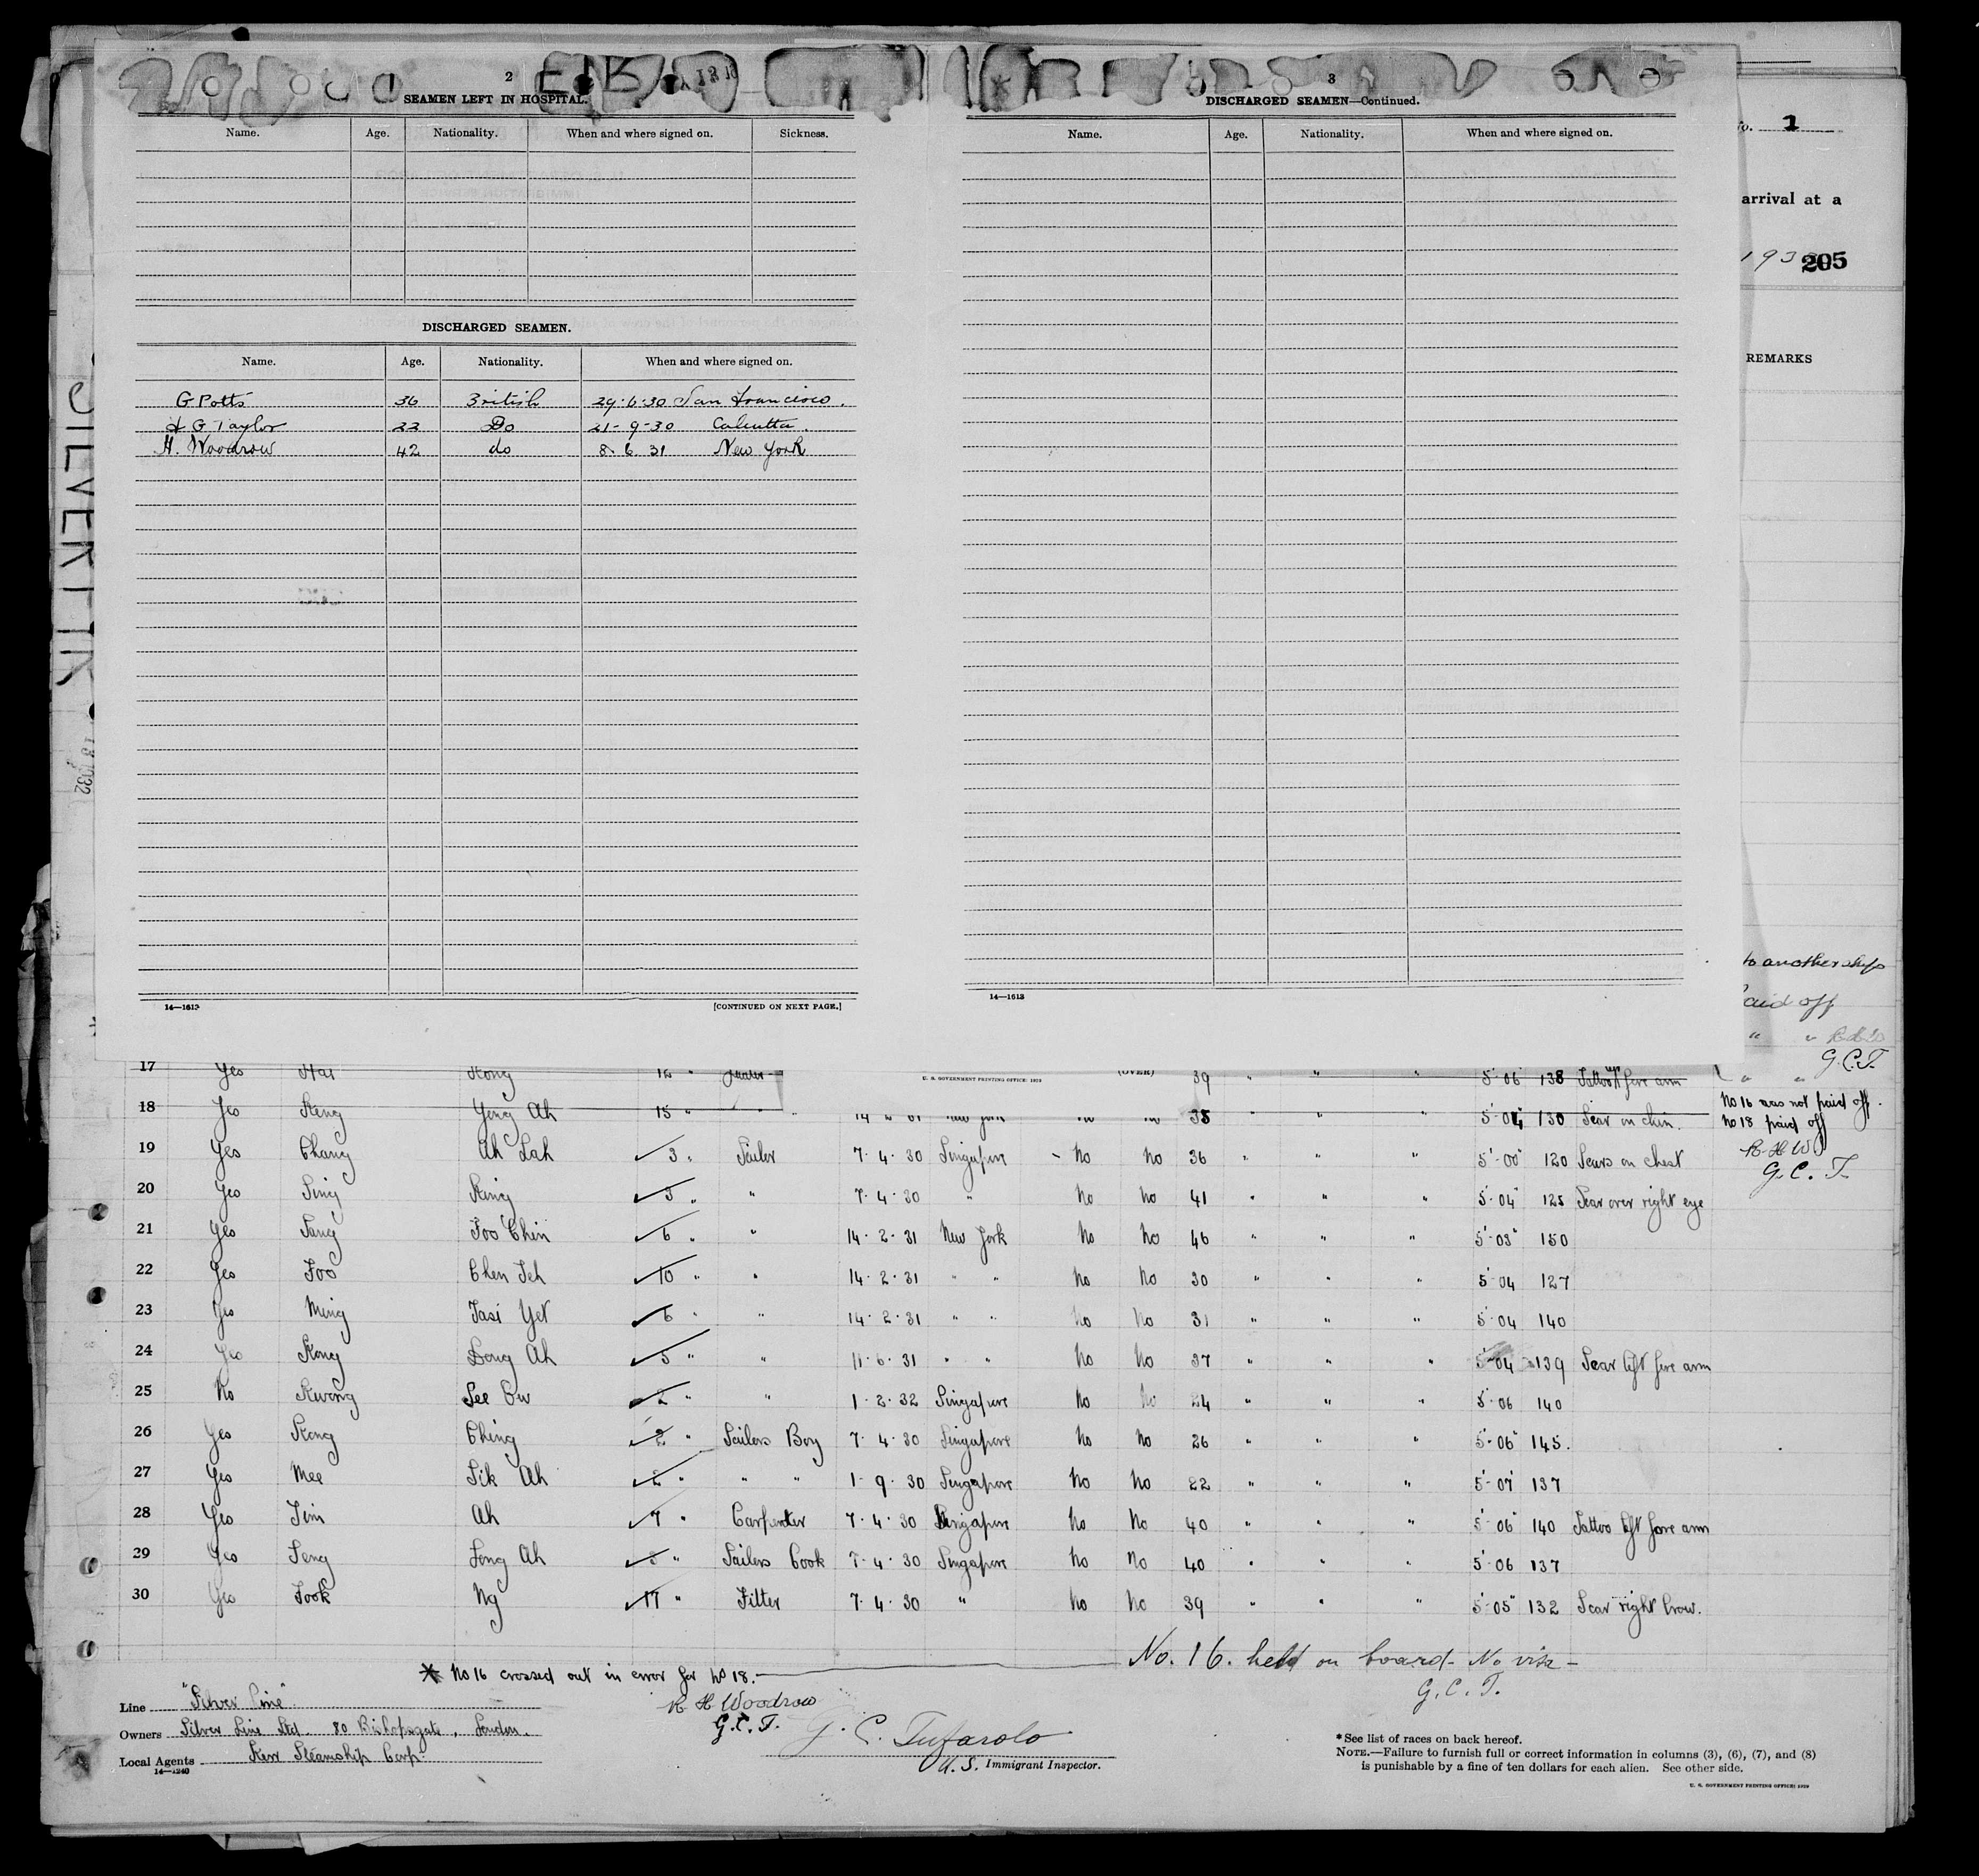 2
SEAMEN LEFT IN HOSPITAL.
Name. Age. Nationality. When and where signed on. Sickness.
DISCHARGED SEAMEN.
Name. Age. Nationality. When and where signed on.
G Potts 36 British 29·6·30 San Francisco.
G Taylor 22 Do 21-9-30 Calcutta.
H. Woodrow 42 do 8.6 31 New York
14—1613 [CONTINUED ON NEXT PAGE.]
3
DISCHARGED SEAMEN—Continued.
Name. Age. Nationality. When and where signed on.
14—1613
1
arrival at a
193
205
REMARKS
to another ship
aid off
" "
G.C.T.
SILVER
U. S. GOVERNMENT PRINTING OFFICE: 1929
(OVER)
17 Yes Hai Kong 12 " 39 " " " 5'·06 138 Tattoo fore arm " "
18 Yes Keng Yong Ah 15 " " 35 5'-04" 130 Scar on chin.
No 16 was not paid off.
No 18 paid off
R H W
G. C. T.
19 Yes Chang Ah Lah 3 " Sailor 7·4·30 Singapore No No 36 " " " 5'-00" 120 Scars on chest
20 Yes Sing King 3 " " 7·4·30 " No No 41 " " " 5'-04" 125 Scar over right eye
21 Yes Sang Foo Chin 6 " " 14·2·31 New York No No 46 " " " 5'-03" 150
22 Yes Foo Chen Teh 10 " " 14·2·31 " " No No 30 " " " 5'-04 127
23 Yes Ming Tasi Yet 6 " " 14·2·31 " " No No 31 " " " 5'-04 140
24 Yes Kong Dong Ah 5 " " 11·6·31 " " No No 37 " " " 5'-04 139 Scar left fore arm
25 No Kwong See Ow 2 " " 1·2·32 Singapore No No 24 " " " 5'-06 140
26 Yes Kong Ching 2 " Sailors Boy 7·4·30 Singapore No No 26 " " " 5'-06" 145.
27 Yes Mee Sik Ah 2 " " " 1·9·30 Singapore No No 22 " " " 5'-07 137
28 Yes Tim Ah 7 " Carpenter 7·4·30 Singapore No No 40 " " " 5'-06" 140 Tattoo left fore arm
29 Yes Seng Fong Ah " Sailors Cook 7·4·30 Singapore No No 40 " " " 5'-06 137
30 Yes Fook Ng 17 " Fitter 7·4·30 " No No 39 " " " 5'-05" 132 Scar right brow.
No. 16. held on board - No visa -
G. C. T.
* No 16 crossed out in error for No 18.
R H Woodrow
G.C.T.
Line "Silver Line"
Owners Silver Line Ltd. 80 Bishopsgate, London.
Local Agents Kerr Steamship Corp.
14—1240
G. C. Tufarolo
U. S. Immigrant Inspector.
*See list of races on back hereof.
NOTE.—Failure to furnish full or correct information in columns (3), (6), (7), and (8)
is punishable by a fine of ten dollars for each alien. See other side.
U. S. GOVERNMENT PRINTING OFFICE: 1929